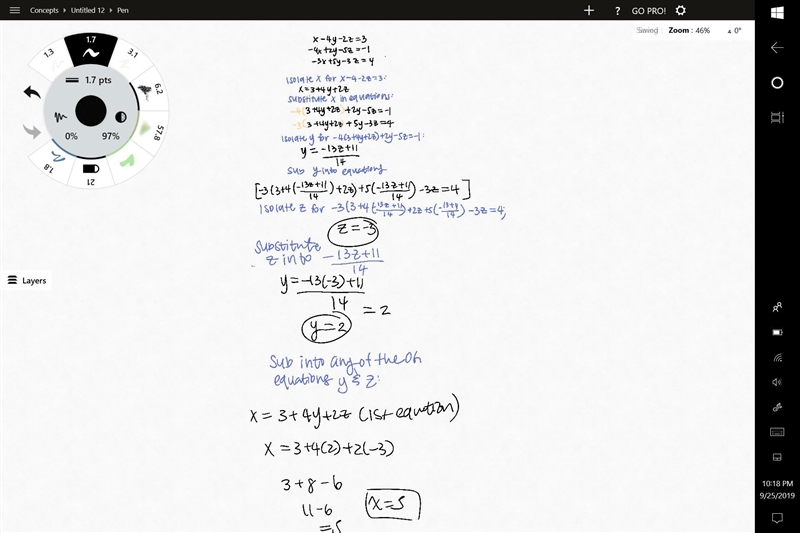 Concepts › Untitled 12 › Pen
+ ? GO PRO!
Saving
Zoom : 46% 0°
1.7
1.3
3.1
1.7 pts
6.2
0% 97%
57.8
1.8
21
Layers
x-4y-2z=3
-4x+2y-5z=-1
-3x+5y-3z=4
isolate x for x-4-2z=3:
x=3+4y+2z
substitute x in equations:
-4(3+4y+2z)+2y-5z=-1
-3(3+4y+2z)+5y-3z=4
isolate y for -4(3+4y+2z)+2y-5z=-1:
y = -13z+11
14
Sub y into equations
[-3(3+4(-13z+11/14)+2z)+5(-13z+11/14)-3z=4]
z=-3
substitute
z into -13z+11
14
y=-13(-3)+11
14 = 2
y=2
Sub into any of the
equations y & z:
x = 3+4y+2z (1st equation)
x = 3+4(2)+2(-3)
3+8-6
11-6
=5
x=5
10:18 PM
9/25/2019